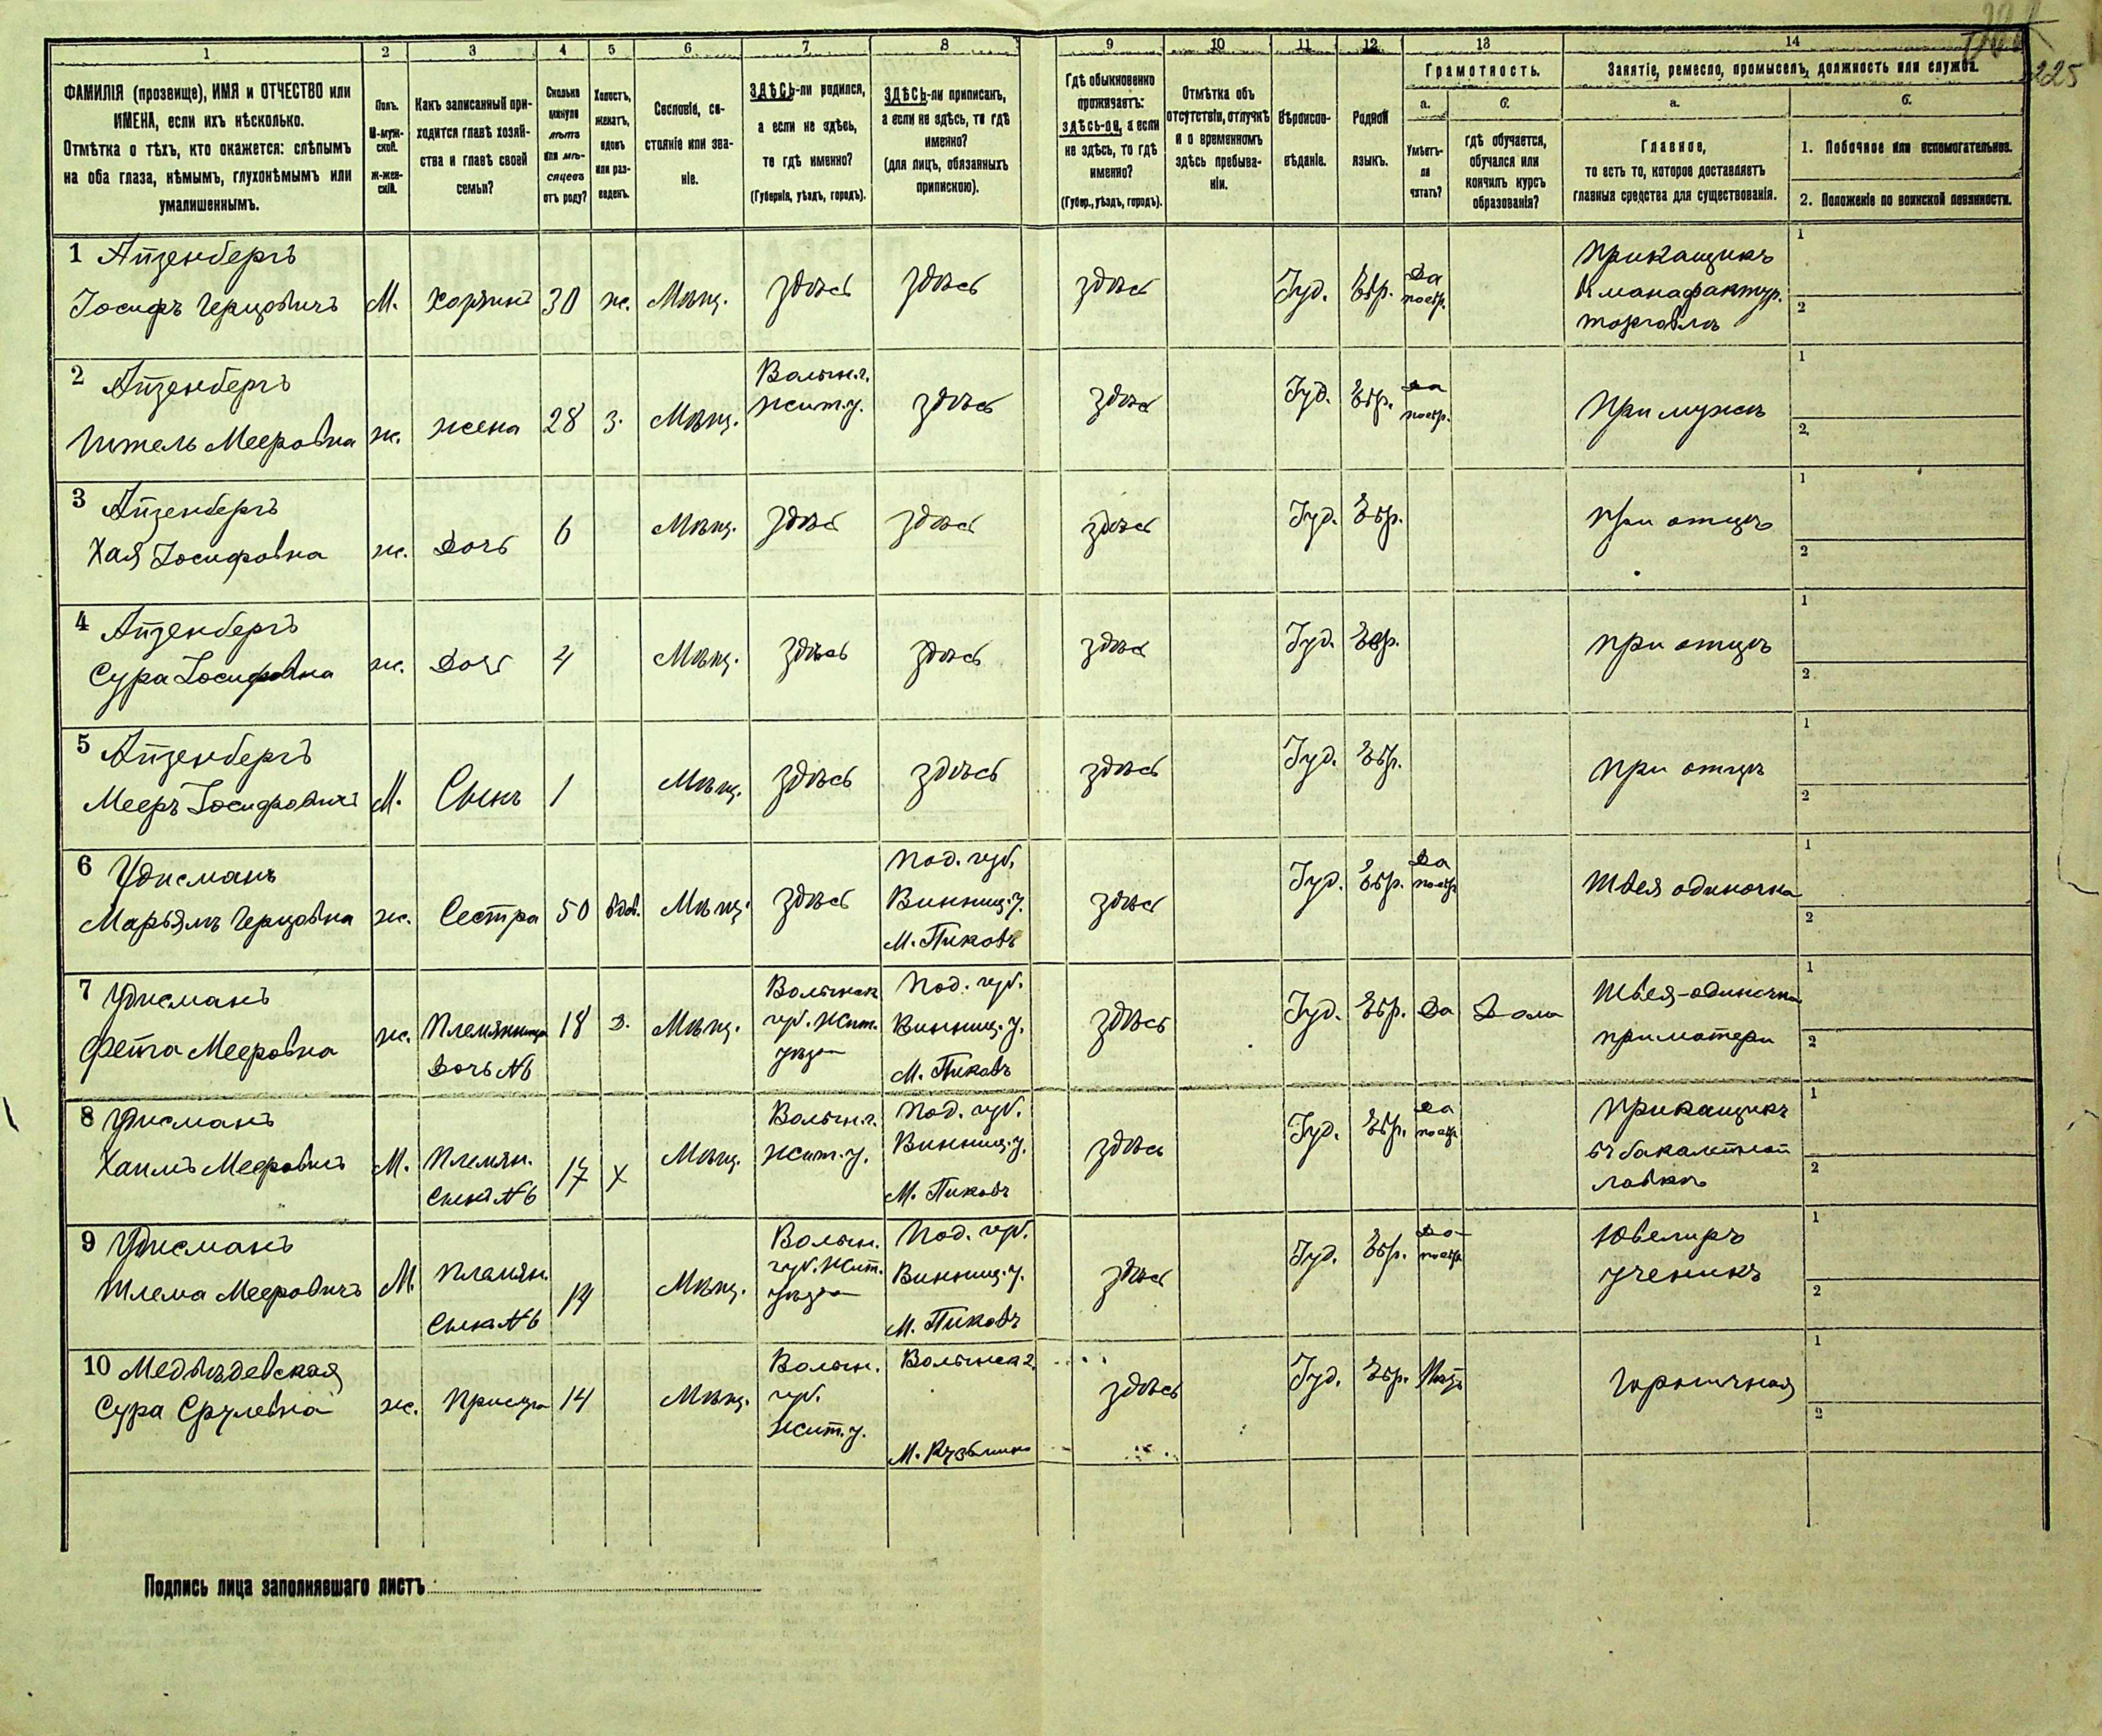 225
1 2 3 4 5 6 7 8 9 10 11 12 13 14
ФАМИЛІЯ (прозвище), ИМЯ и ОТЧЕСТВО или
ИМЕНА, если ихъ нѣсколько.
Отмѣтка о тѣхъ, кто окажется: слѣпымъ
на оба глаза, нѣмымъ, глухонѣмымъ или
умалишеннымъ.
Полъ.
М-муж-
ской.
Ж-жен-
скій.
Какъ записанный при-
ходится главѣ хозяй-
ства и главѣ своей
семьи?
Сколько
минуло
лѣтъ
или мѣ-
сяцевъ
отъ роду?
Холостъ,
женатъ,
вдовъ
или раз-
веденъ.
Сословіе, со-
стояніе или зва-
ніе.
ЗДѢСЬ-ли родился,
а если не здѣсь,
то гдѣ именно?
(Губернія, уѣздъ, городъ).
ЗДѢСЬ-ли приписанъ,
а если не здѣсь, то гдѣ
именно?
(для лицъ, обязанныхъ
припискою).
Гдѣ обыкновенно
проживаетъ:
здѣсь-ли, а если
не здѣсь, то гдѣ
именно?
(Губер., уѣздъ, городъ).
Отмѣтка объ
отсутствіи, отлучкѣ
и о временномъ
здѣсь пребыва-
ніи.
Вѣроиспо-
вѣданіе.
Родной
языкъ.
Грамотность.
а.
Умѣетъ-
ли
читать?
б.
гдѣ обучается,
обучался или
кончилъ курсъ
образованія?
Занятіе, ремесло, промыселъ, должность или служба.
а.
Главное,
то есть то, которое доставляетъ
главныя средства для существованія.
б.
1. Побочное или вспомогательное.
2. Положеніе по воинской повинности.
1 Айзенбергъ
Іосифъ Герцовичъ
М.
хозяинъ
30
ж.
Мѣщ.
здѣсь
здѣсь
здѣсь
Іуд.
Евр.
Да
поевр.
Прикащикъ
въ манафактур.
торговлѣ
1
2
2 Айзенбергъ
Итель Мееровна
ж.
жена
28
з.
Мѣщ.
Волын. г.
Жит. у.
здѣсь
здѣсь
Іуд.
Евр.
да
поевр.
при мужѣ
1
2
3 Айзенбергъ
Хая Іосифовна
ж.
Дочь
6
Мѣщ.
здѣсь
здѣсь
здѣсь
Іуд.
Евр.
при отцѣ
1
2
4 Айзенбергъ
Сура Іосифовна
ж.
Дочь
4
Мѣщ.
здѣсь
здѣсь
здѣсь
Іуд.
Евр.
при отцѣ
1
2
5 Айзенбергъ
Мееръ Іосифовичъ
М.
Сынъ
1
Мѣщ.
здѣсь
здѣсь
здѣсь
Іуд.
Евр.
при отцѣ
1
2
6
Марьямъ Герцовна
ж.
Сестра
50
вдов.
Мѣщ.
здѣсь
Под. губ.
Винниц. у.
М. Пиковъ
здѣсь
Іуд.
Евр.
Да
поевр.
Швея одиночка
1
2
7
Фейга Мееровна
ж.
Племянница
Дочь №6
18
д.
Мѣщ.
Волынск.
губ. Жит.
уѣзда
Под. губ.
Винниц. у.
М. Пиковъ
здѣсь
Іуд.
Евр.
Да
Дома
Швея-одиночка
при матери
1
2
8
Хаимъ Мееровичъ
М.
Племян.
Сынъ №6
17
х
Мѣщ.
Волын. г.
Жит. у.
Под. губ.
Винниц. у.
М. Пиковъ
здѣсь
Іуд.
Евр.
да
поевр.
Прикащикъ
въ бакалейной
лавкѣ
1
2
9
Шлема Мееровичъ
М.
Племян.
Сынъ №6
14
Мѣщ.
Волын.
губ. Жит.
уѣзда
Под. губ.
Винниц. у.
М. Пиковъ
здѣсь
Іуд.
Евр.
Да
поевр.
Ювелиръ
ученикъ
1
2
10 Медвѣдевская
Сура Срулевна
ж.
Прислуга
14
Мѣщ.
Волын.
губ.
Жит. у.
Волынск. г.
здѣсь
Іуд.
Евр.
Нѣтъ
Горничная
1
2
Подпись лица заполнявшаго листъ